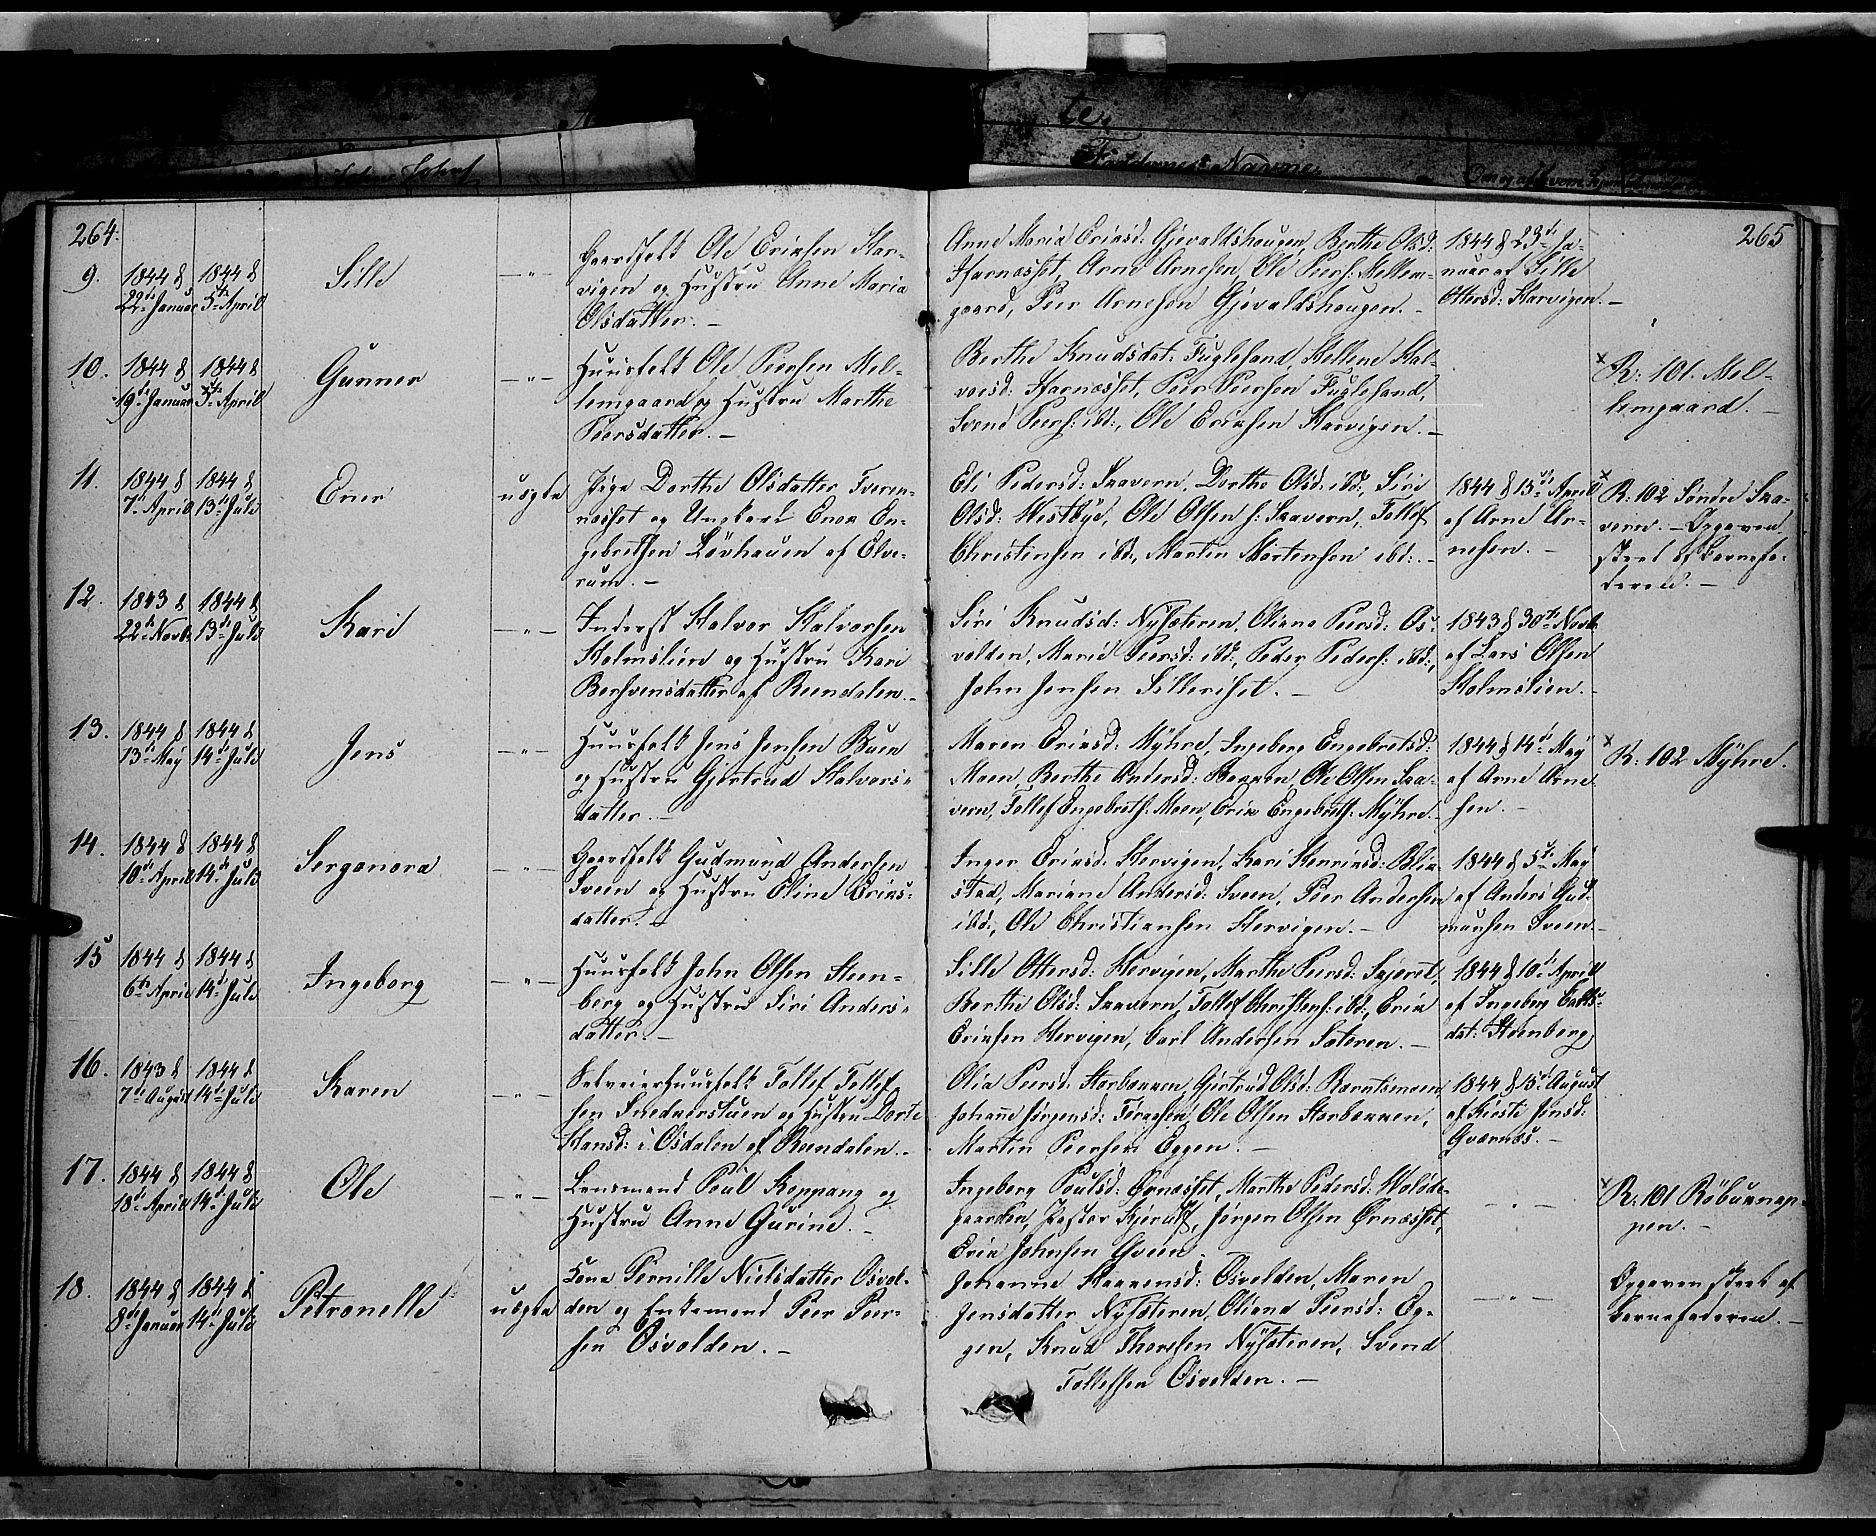 264.
265
Faddernes Navne.
9.
1844 d
22de Januar
1844 d
5te April
Sille
— " —
Gaardfolk Ole Eriksen Har-
vigen og Hustru Anne Maria
Olsdatter. —
Anne Maria Eriksd: Gjevaldshaugen, Berthe Olsd:
Harnæsset, Arne Arnesen, Ole Peers: Mellem-
gaard, Peer Arnesen Gjevaldshaugen. —
1844 d 23de Ja-
nuar af Sille
Ottersd: Harvigen. —
10.
1844 d
19de Januar
1844 d
5te April
Gunner
— " —
Huusfolk Ole Peersen Mel-
lemgaard og Hustru Marthe
Peersdatter. —
Berthe Knudsdat: Fuglesand, Hellene Hal-
vorsd: Harnæsset, Peer Peersen Fuglesand,
Svend Peers: ibd:, Ole Eriksen Harvigen. —
x R: 101. Mel-
lemgaard. —
11.
1844 d
7de April
1844 d
13de Juli
Ener
uægte
Pige Dorthe Olsdatter Tveren-
næsset og Ungkarl Ener En-
gebrethsen Løvhauen af Elve-
rum. —
Eli Pedersd: Saavern, Dorthe Olsd: ibd:, Siri
Olsd: Westbye, Ole Olsen s: Saavern, Tollef
Christensen ibd:, Martin Mortensen ibd: —
1844 d 15de April
af Arne Ar-
nesen. —
x R: 102 Søndre Saa-
vern. — Opgaven
skeet af Barnefa-
deren. —
12.
1843 d
22de Novbr
1844 d
13de Juli
Kari
— " —
Inderst Halvor Halvorsen
Holmslien og Hustru Kari
Bersvensdatter af Rendalen. —
Siri Knudsd: Nysæteren, Oliane Peersd: Os-
volden, Marie Peersd: ibd:, Peder Peders: ibd:,
John Jensen Sætteriset. —
1843 d 30te Novbr
af Lars Olsen
Holmslien. —
13.
1844 d
13de May
1844 d
14de Juli
Jens
— " —
Huusfolk Jens Jensen Buen
og Hustru Gjertrud Halvors-
datter. —
Maren Eriksd: Myhre, Ingeberg Engebretsd:
Moen, Berthe Andersd: Bakken, Ole Olsen Saa-
vern, Tollef Engebreths: Moen, Erik Engebreths: Myhre. —
1844 d 14de May
af Arne Arne-
sen. —
x R: 102 Myhre.
14.
1844 d
10de April
1844 d
14de Juli
Serganora
— " —
Gaardfolk Gudmund Andersen
Sveen og Hustru Oline Eriks-
datter. —
Inger Eriksd: Hervigen, Kari Henriksd: Blik-
stad, Mariane Andersd: Sveen, Peer Andersen
ibd:, Ole Christiansen Hervigen. —
1844 d 5te May
af Anders Gud-
mundsen Sveen. —
15
1844 d
6te April
1844 d
14de Juli
Ingeborg
— " —
Huusfolk John Olsen Steen-
berg og Hustru Siri Anders-
datter. —
Sille Ottersd: Hervigen, Marthe Peersd: Skjæret,
Berthe Olsd: Saavern, Tollef Christens: ibd:, Erik
Eriksen Hervigen, Carl Andersen Sæteren. —
1844 d 10de April
af Ingeberg
dat: Steenberg.
16.
1843 d
7de August
1844 d
14de Juli
Karen
— " —
Selveierhuusfolk Tollef Tollef-
sen Snedkerstuen og Hustru Dorte
Hansd: i Osdalen af Rendalen. —
Olia Peersd: Storbækken, Gjertrud Olsd: Berntsmoen,
Johanne Jørgensd: Ole Olsen Storbækken,
Martin Peersen Eggen. —
1844 d 15de August
af Kirsti Jensd:
Gværnæs. —
17.
1844 d
18de April
1844 d
14de Juli
Ole
— " —
Lensmand Poul Koppang og
Hustru Anne Gurine. —
Ingeberg Poulsd: Ørnæsset, Marthe Pedersd: Wolde-
gaarden, Pastor Kjerulf, Jørgen Olsen Ørnæsset,
Erik Johnsen Qveen. —
— " —
x R: 101 Købunnap-
pen. —
18.
1844 d
8de Januar
1844 d
14de Juli
Petronelle
uægte
Kone Pernille Nielsdatter Osvol-
den og Enkemand Peer Peer-
sen Osvolden. —
Johanne Haakensd: Osvolden, Maren
Jensdatter Nysæteren, Oliana Peersd: Eg-
gen, Knud Thoresen Nysæteren, Svend
Tollefsen Osvolden. —
— " —
Opgaven skeet af
Barnefaderen. —